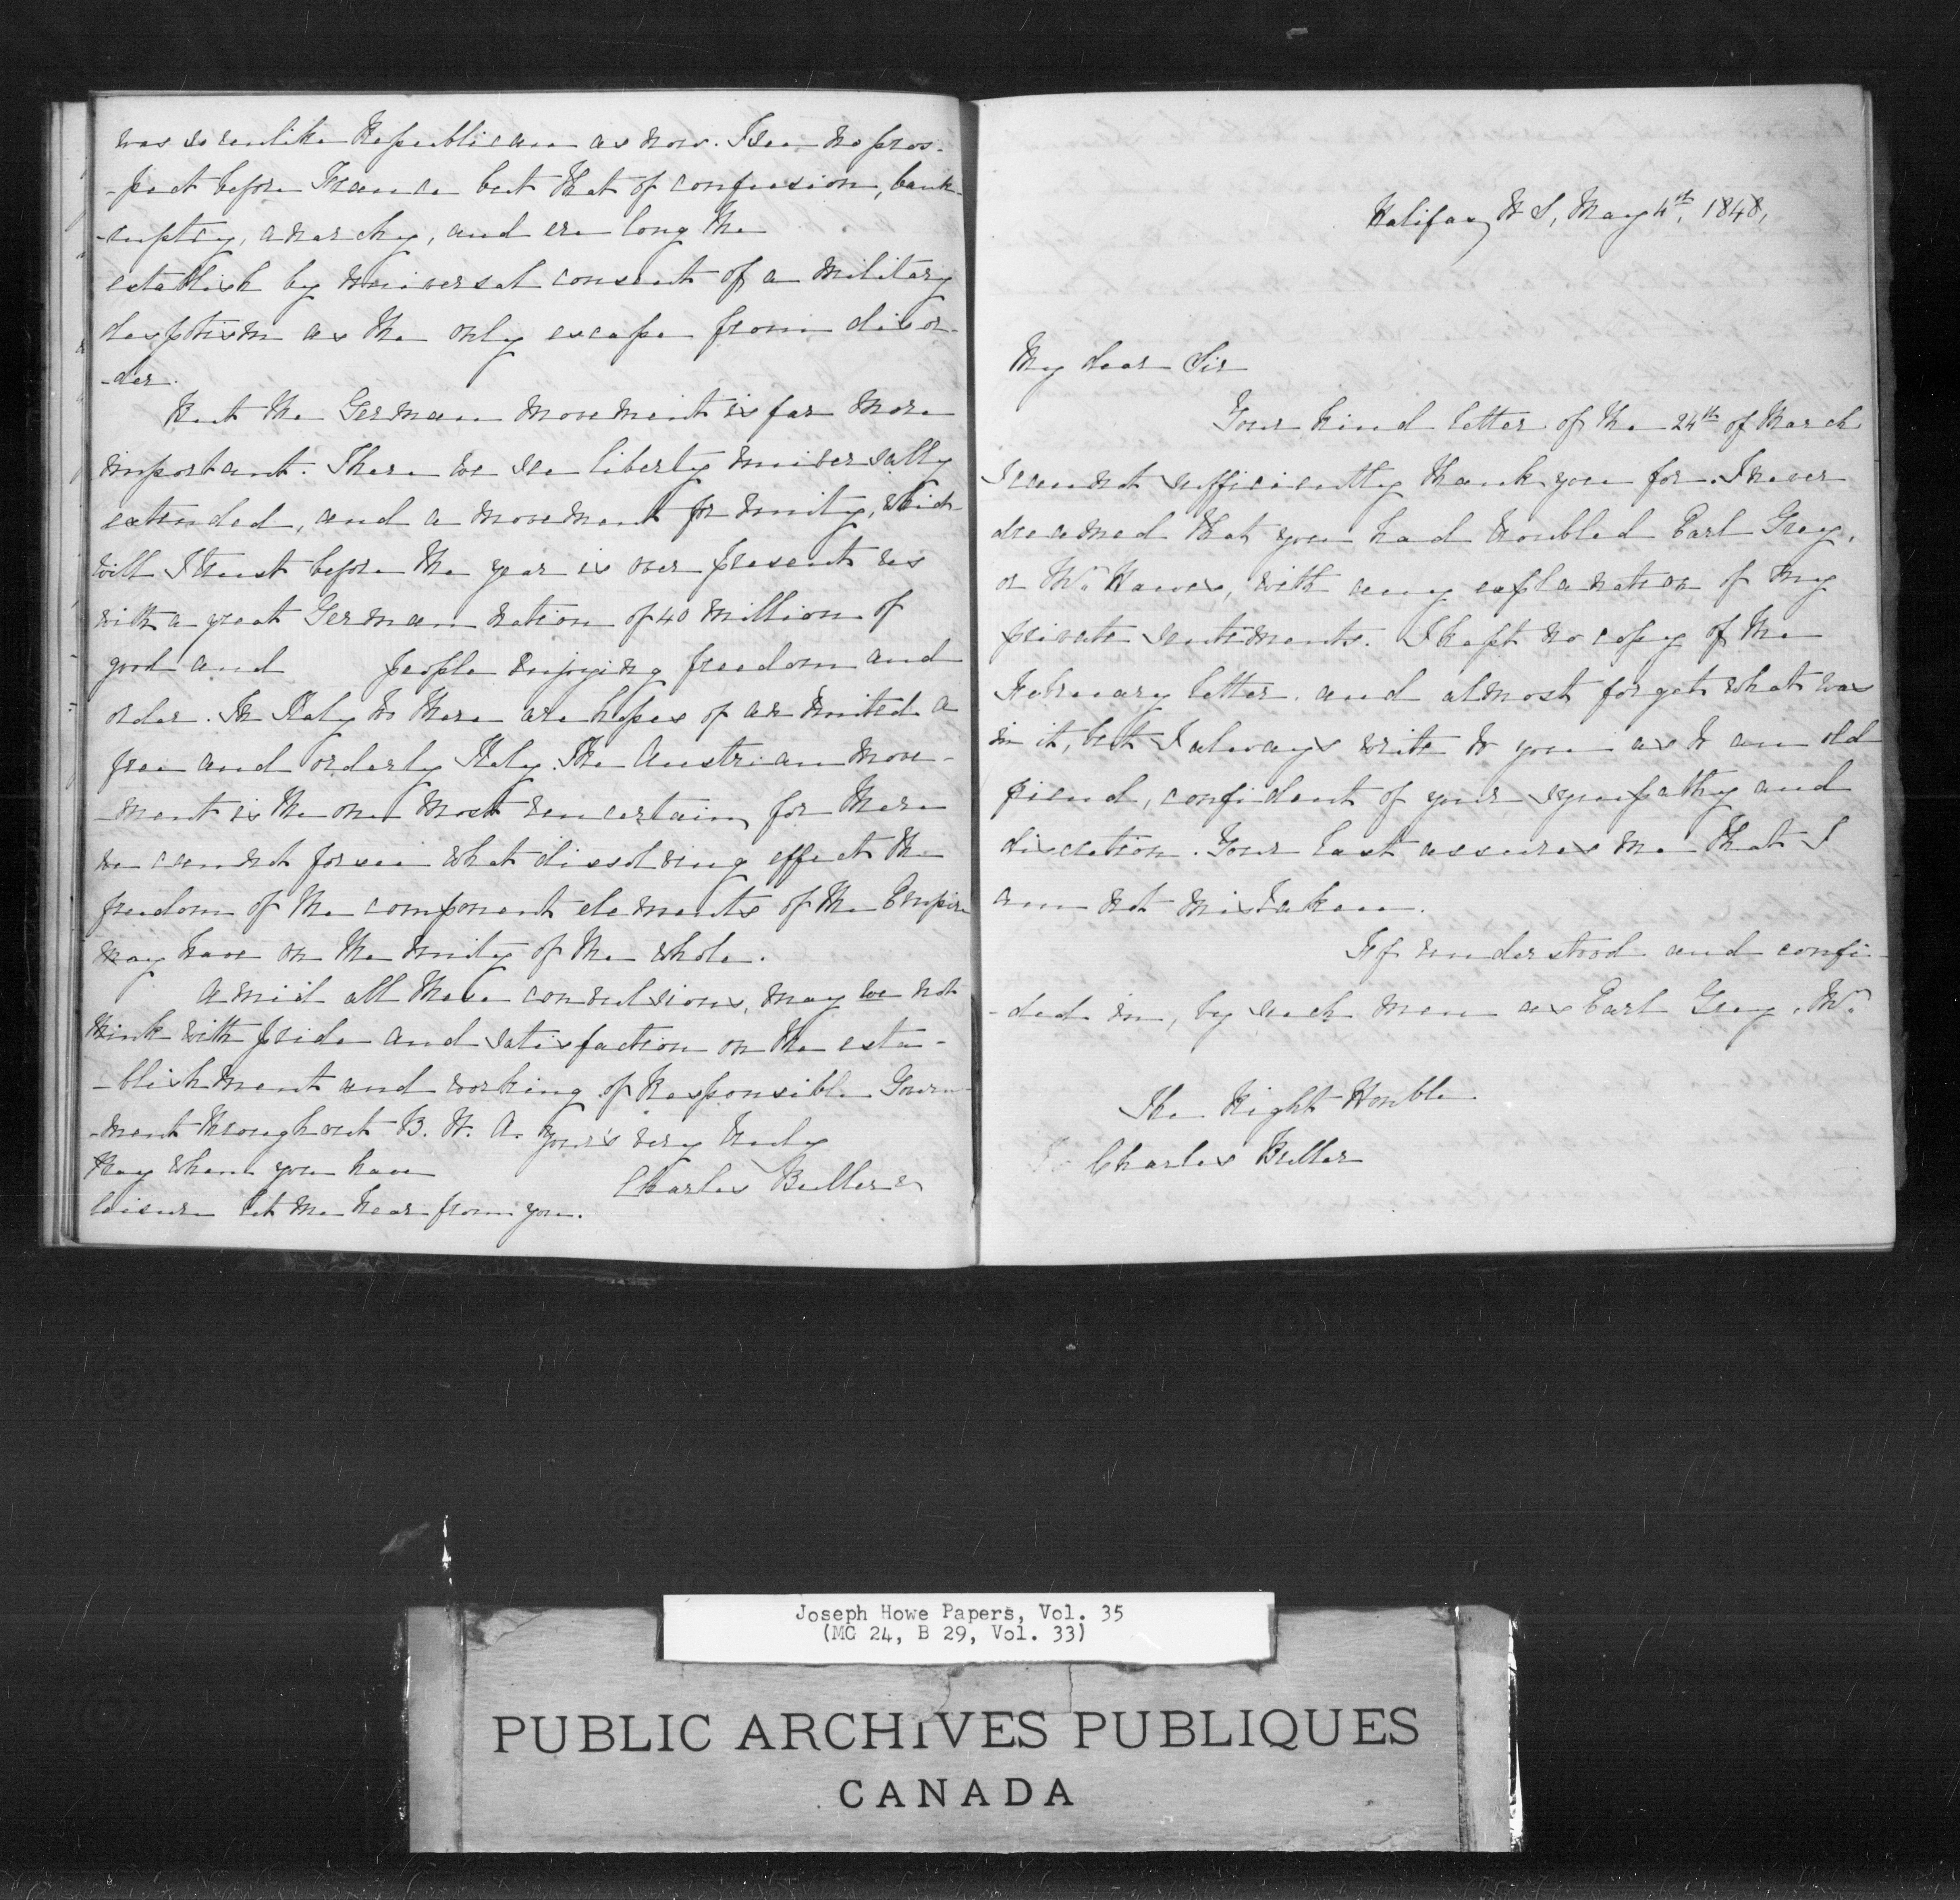 was so unlike Republican as now. I see no pros-
-pect before France but that of confusion, bank-
-ruptcy, anarchy, and ere long the
establish by universal consent of a military
desptism as the only escape from disor-
-der.
But the German movement is far more
important. There we see liberty universally
extended, and a movement for unity, which
will I trust before the year is over present us
with a great German nation of 40 million of
good and people enjoying freedom and
order. In Italy to there are hopes of an united a
free and orderly Italy. The Austrian move-
-ment is the one most uncertain, for there
we cannot forsee what dissolving effect the
freedom of the component elements of the Empire
may have on the unity of the whole.
Amid all these convulsions, may we not
think with pride and satisfaction on the esta-
-blishment and working of Responsible Govern-
-ment throughout B. N. A. Your's very truly
Pray when you have
Charles Buller
leisure let me hear from you.
Halifax N S, May 4th, 1848,
My dear Sir
Your kind letter of the 24th of March
I cannot sufficiently thank you for. I never
dreamed that you had troubled Earl Grey,
or Mr Hawes, with any explanation of my
private sentiments. I kept no copy of the
February letter and almost forget what was
in it, but I always write to you as to an old
friend, confident of your sympathy and
discretion. Your last assures me that I
am not mistaken.
If understood and confi-
-ded in, by such men as Earl Grey, Mr
The Right Honble
Charles Buller
Joseph Howe Papers, Vol. 35
(MG 24, B 29, Vol. 33)
PUBLIC ARCHIVES PUBLIQUES
CANADA